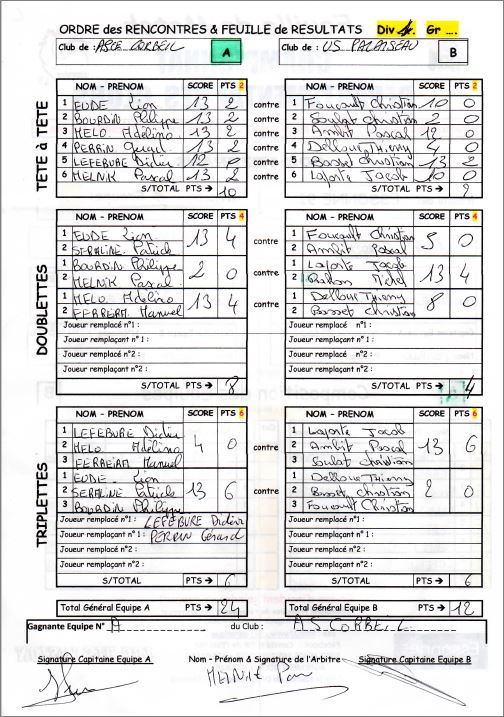 ORDRE des RENCONTRES & FEUILLE de RESULTATS Div 1. Gr ....
Club de : ASCE CORBEIL A Club de : US PALAISEAU B
TETE à TETE
NOM - PRENOM SCORE PTS 2 NOM - PRENOM SCORE PTS 2
1 EUDE Lion 13 2 contre 1 Foucault Christian 10 0
2 BOURDIN Philippe 13 2 contre 2 Soulat Christian 2 0
3 MELO Adelino 13 2 contre 3 Ambit Pascal 12 0
4 PERRIN Gerard 13 2 contre 4 Delloue Thierry 4 0
5 LEFEBURE Didier 12 0 contre 5 Bosset Christian 13 2
6 MELNIK Pascal 13 2 contre 6 Laforte Jacob 10 0
S/TOTAL PTS → 10 S/TOTAL PTS → 2
DOUBLETTES
NOM - PRENOM SCORE PTS 4 NOM - PRENOM SCORE PTS 4
1 EUDE Lion 13 4 contre 1 Foucault Christian 5 0
2 SERALINE Patrick 2 Ambit Pascal
1 BOURDIN Philippe 2 0 contre 1 Laforte Jacob 13 4
2 MELNIK Pascal 2 Michel
1 MELO Adelino 13 4 contre 1 Delloue Thierry 8 0
2 FERREIRA Manuel 2 Bosset Christian
Joueur remplacé n°1 : Joueur remplacé n°1 :
Joueur remplaçant n°1 : Joueur remplaçant n°1 :
Joueur remplacé n°2 : Joueur remplacé n°2 :
Joueur remplaçant n°2 : Joueur remplaçant n°2 :
S/TOTAL PTS → 8 S/TOTAL PTS → 4
TRIPLETTES
NOM - PRENOM SCORE PTS 6 NOM - PRENOM SCORE PTS 6
1 LEFEBURE Didier 1 Laforte Jacob
2 MELO Adelino 4 0 contre 2 Ambit Pascal 13 6
3 FERREIRA Manuel 3 Soulat Christian
1 EUDE Lion 1 Delloue Thierry
2 SERALINE Patrick 13 6 contre 2 Bosset Christian 2 0
3 BOURDIN Philippe 3 Foucault Christian
Joueur remplacé n°1 : LEFEBURE Didier Joueur remplacé n°1 :
Joueur remplaçant n°1 : PERRIN Gérard Joueur remplaçant n°1 :
Joueur remplacé n°2 : Joueur remplacé n°2 :
Joueur remplaçant n°2 : Joueur remplaçant n°2 :
S/TOTAL PTS → 6 S/TOTAL PTS → 6
Total Général Equipe A 24 Total Général Equipe B 12
Gagnante Equipe N° A du Club : A.S CORBEIL
Signature Capitaine Equipe A Nom - Prénom & Signature de l'Arbitre Signature Capitaine Equipe B
MELNIK